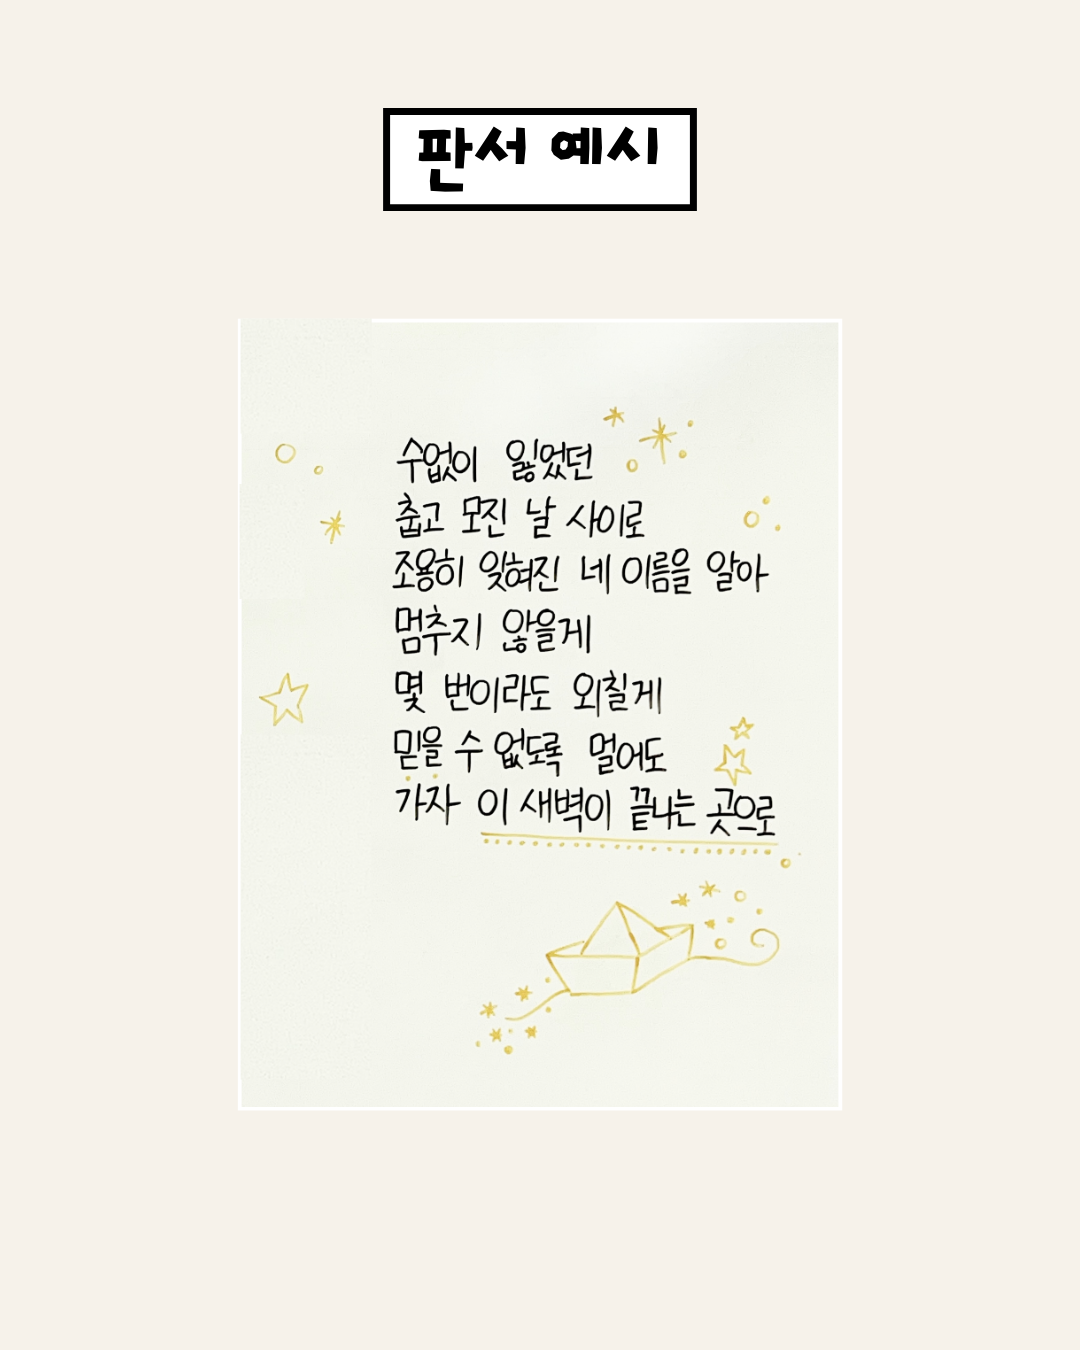 판서 예시
수없이 잃었던
춥고 모진 날 사이로
조용히 잊혀진 네 이름을 알아
멈추지 않을게
몇 번이라도 외칠게
믿을 수 없도록 멀어도
가자 이 새벽이 끝나는 곳으로